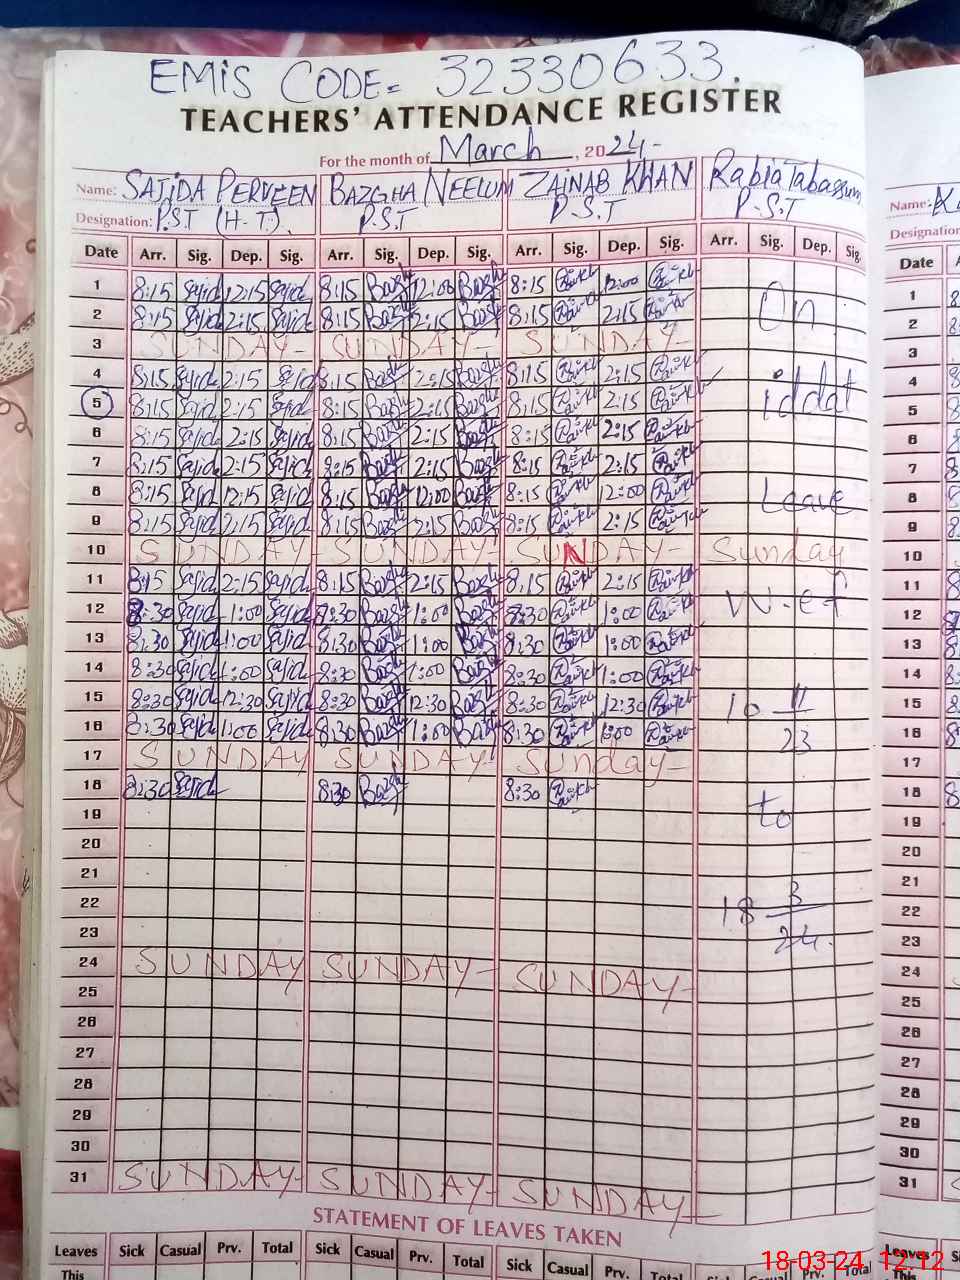 EMIS CODE= 32330633.
TEACHERS' ATTENDANCE REGISTER
For the month of March, 2024-
Name: SAJIDA PERVEEN BAZGHA NEELUM ZAINAB KHAN Rabia Tabassum Name:
Designation: P.S.T (H.T). P.S.T P.S.T P-S.T Designation
Date Arr. Sig. Dep. Sig. Arr. Sig. Dep. Sig. Arr. Sig. Dep. Sig. Arr. Sig. Dep. Sig. Date
1 8:15 Sajid 12:15 Sajid 8:15 Bazgh 12:00 Bazgh 8:15 12:00 On 1
2 8:15 Sajid 2:15 Sajid 8:15 Bazgh 2:15 Bazgh 8:15 2:15 2
3 SUNDAY- SUNDAY- SUNDAY- 3
4 8:15 Sajid 2:15 Sajid 8:15 Bazgh 2:15 Bazgh 8:15 2:15 iddat 4
5 8:15 Sajid 2:15 Sajid 8:15 Bazgh 2:15 Bazgh 8:15 2:15 5
6 8:15 Sajid 2:15 Sajid 8:15 Bazgh 2:15 Bazgh 8:15 2:15 6
7 8:15 Sajid 2:15 Sajid 8:15 Bazgh 2:15 Bazgh 8:15 2:15 7
8 8:15 Sajid 12:15 Sajid 8:15 Bazgh 12:00 Bazgh 8:15 12:00 Leave 8
9 8:15 Sajid 2:15 Sajid 8:15 Bazgh 2:15 Bazgh 8:15 2:15 9
10 SUNDAY- SUNDAY- SUNDAY- Sunday 10
11 8:15 Sajid 2:15 Sajid 8:15 Bazgh 2:15 Bazgh 8:15 2:15 W.e.f 11
12 8:30 Sajid 1:00 Sajid 8:30 Bazgh 1:00 Bazgh 8:30 1:00 12
13 8:30 Sajid 1:00 Sajid 8:30 Bazgh 1:00 Bazgh 8:30 1:00 13
14 8:30 Sajid 1:00 Sajid 8:30 Bazgh 1:00 Bazgh 8:30 1:00 14
15 8:30 Sajid 12:30 Sajid 8:30 Bazgh 12:30 Bazgh 8:30 12:30 10 11 15
16 8:30 Sajid 1:00 Sajid 8:30 Bazgh 1:00 Bazgh 8:30 1:00 23 16
17 SUNDAY SUNDAY- Sunday- 17
18 8:30 Sajid 8:30 Bazgh 8:30 18
19 to 19
20 20
21 21
22 18 3 22
23 24. 23
24 SUNDAY SUNDAY- SUNDAY- 24
25 25
26 26
27 27
28 28
29 29
30 30
31 SUNDAY- SUNDAY- SUNDAY- 31
STATEMENT OF LEAVES TAKEN
Leaves Sick Casual Prv. Total Sick Casual Prv. Total Sick Casual Prv. Total Sick Casual Prv. Total Leaves
This This
18-03-24, 12:12